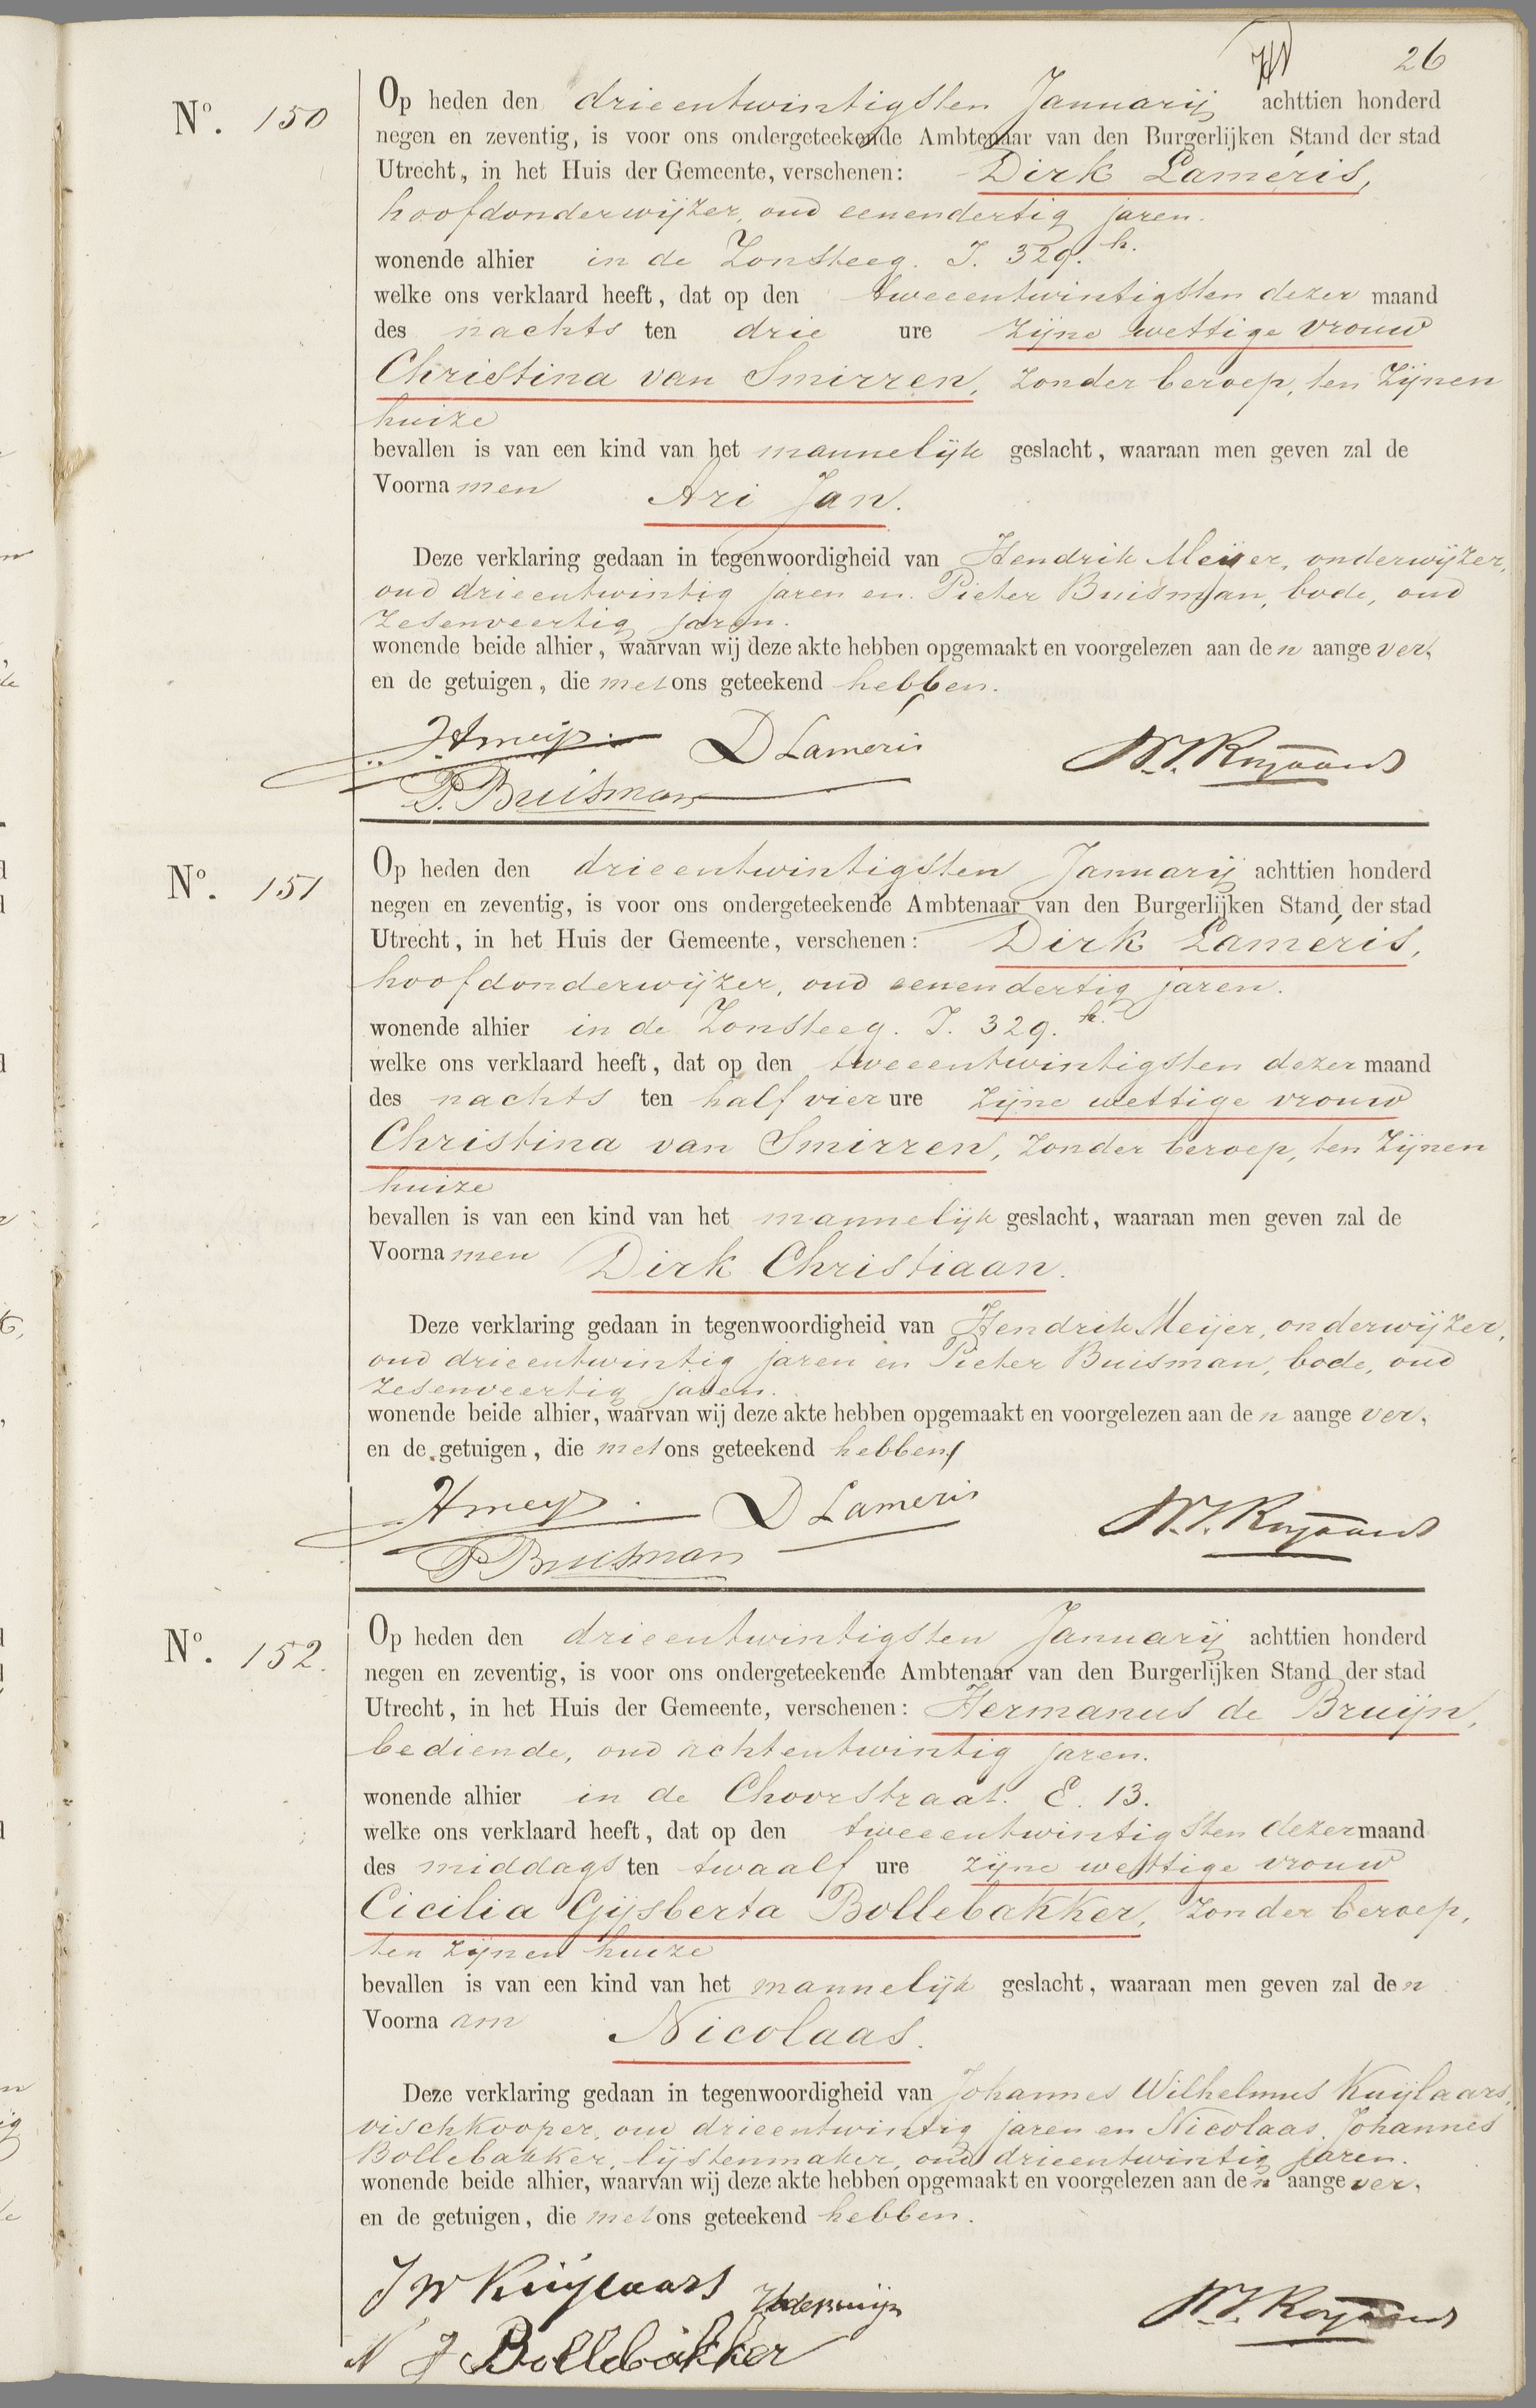 26
Nº. 150
Op heden den drieentwintigsten Januarij achttien honderd
negen en zeventig, is voor ons ondergeteekende Ambtenaar van den Burgerlijken Stand der stad
Utrecht, in het Huis der Gemeente, verschenen: Dirk Laméris,
hoofdonderwijzer, oud eenendertig jaren.
wonende alhier in de Zonsteeg. J. 329. h.
welke ons verklaard heeft, dat op den tweeentwintigsten dezer maand
des nachts ten drie ure zijne wettige vrouw
Christina van Smirren, zonder beroep, ten zijnen
huize
bevallen is van een kind van het mannelijk geslacht, waaraan men geven zal de
Voornamen Ari Jan.
Deze verklaring gedaan in tegenwoordigheid van Hendrik Meijer, onderwijzer,
oud drieentwintig jaren en Pieter Buisman, bode, oud
zesenveertig jaren.
wonende beide alhier, waarvan wij deze akte hebben opgemaakt en voorgelezen aan den aangever,
en de getuigen, die met ons geteekend hebben.
HMeijer. D Lameris
P. Buisman
Nº. 151
Op heden den drieentwintigsten Januarij achttien honderd
negen en zeventig, is voor ons ondergeteekende Ambtenaar van den Burgerlijken Stand der stad
Utrecht, in het Huis der Gemeente, verschenen: Dirk Laméris,
hoofdonderwijzer, oud eenendertig jaren.
wonende alhier in de Zonsteeg. J. 329. h.
welke ons verklaard heeft, dat op den tweeentwintigsten dezer maand
des nachts ten half vier ure zijne wettige vrouw
Christina van Smirren, zonder beroep, ten zijnen
huize
bevallen is van een kind van het mannelijk geslacht, waaraan men geven zal de
Voornamen Dirk Christiaan.
Deze verklaring gedaan in tegenwoordigheid van Hendrik Meijer, onderwijzer,
oud drieentwintig jaren en Pieter Buisman, bode, oud
zesenveertig jaren.
wonende beide alhier, waarvan wij deze akte hebben opgemaakt en voorgelezen aan den aangever,
en de getuigen, die met ons geteekend hebben.
HMeijer. D Lameris
P Buisman
Nº. 152.
Op heden den drieentwintigsten Januarij achttien honderd
negen en zeventig, is voor ons ondergeteekende Ambtenaar van den Burgerlijken Stand der stad
Utrecht, in het Huis der Gemeente, verschenen: Hermanus de Bruijn,
bediende, oud achtentwintig jaren.
wonende alhier in de Choorstraat. E. 13.
welke ons verklaard heeft, dat op den tweeentwintigsten dezer maand
des middags ten twaalf ure zijne wettige vrouw
Cicilia Gijsberta Bollebakker, zonder beroep,
ten zijnen huize
bevallen is van een kind van het mannelijk geslacht, waaraan men geven zal den
Voornaam Nicolaas.
Deze verklaring gedaan in tegenwoordigheid van Johannes Wilhelmus Kuijlaars,
vischkooper, oud drieentwintig jaren en Nicolaas Johannes
Bollebakker, lijstenmaker, oud drieentwintig jaren.
wonende beide alhier, waarvan wij deze akte hebben opgemaakt en voorgelezen aan den aangever,
en de getuigen, die met ons geteekend hebben.
J W Kuijlaars HdeBruijn
N J Bollebakker